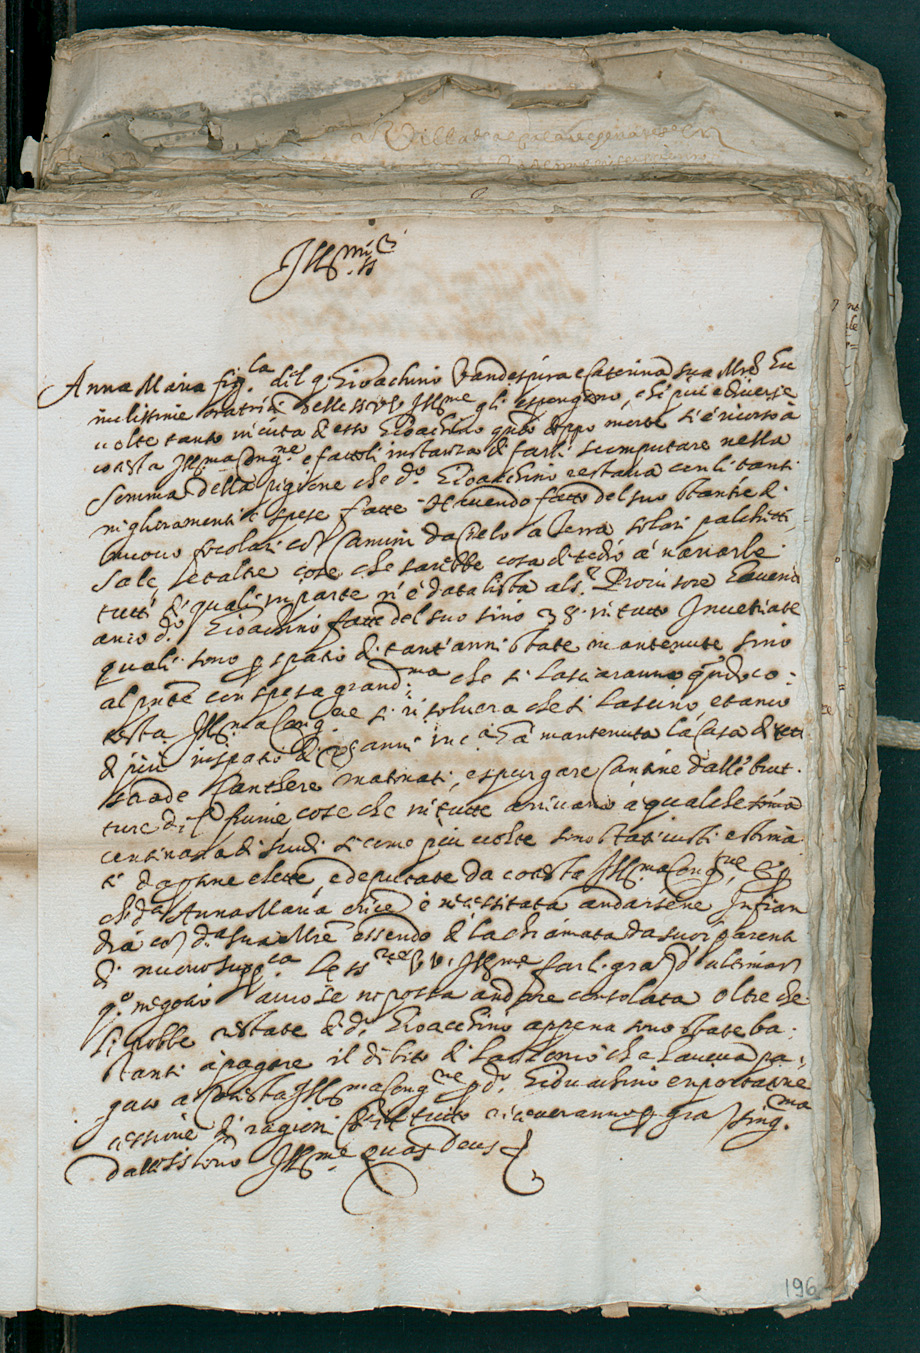 Ill.mi SS.
Anna Maria fig.la del q. Gioachino Vandespira e Caterina sua Mre hu
milissime oratrici delle SS. VV. Ill.me gli espongono, che più e diverse
volte tanto in vita di esso Gioachino quanto doppo morte si è ricorso à
cotesta Ill.ma Cong.ne e fattoli instanza di farli scomputare nella
somma della pigione che d.o Gioacchino restava con li tanti
miglioramenti e spese fatte havendo fatto del suo stantie di
nuovo focolari co' camini da cielo a terra solari palchetti
sale, et altre cose che sarebbe cosa di tedio à narrarle
tutti de quali in parte n'è data lista al s.r Proveditore havendo
anco d.o Gioachino fatte del suo sino 38 in tutto Invetriate
quali sono p spatio di tant'anni state mantenute sino
al pnte con spesa grand.ma che si lasciaranno quando co:
testa Ill.ma Cong.ne si risolverà che si lascino et anco
di più in spatio di anni in c.a hà mantenuta la casa di tetti
strade Panthere matonati, espurgare Cantine dalle brut:
ture di fiume cose che in tutto arrivano à qualche somma
centinara di scudi si come più volte sono stati visti e stima
ti da psone elette, e deputate da cotesta Ill.ma Cong.ne, e p
che d.a Anna Maria orice è necessitata andarsene In fian
dra co' d.a sua Mre essendo di là chiamata da suoi parenti
di nuovo supp.ca le SS. VV. Ill.me farli gra d'ultimar
q.o negotio acciò se ne possa andare consolata oltre che
le robbe restate di d.o Gioacchino appena sono state ba:
stanti à pagare il debito di Lorenzo che haveva pa:
gato a cotesta Ill.ma Cong.ne p d.o Gioachino e riportatone
cessione di ragioni che il tutto riceveranno p gra sing.ma
dalle SS. loro Ill.me quas Deus
196